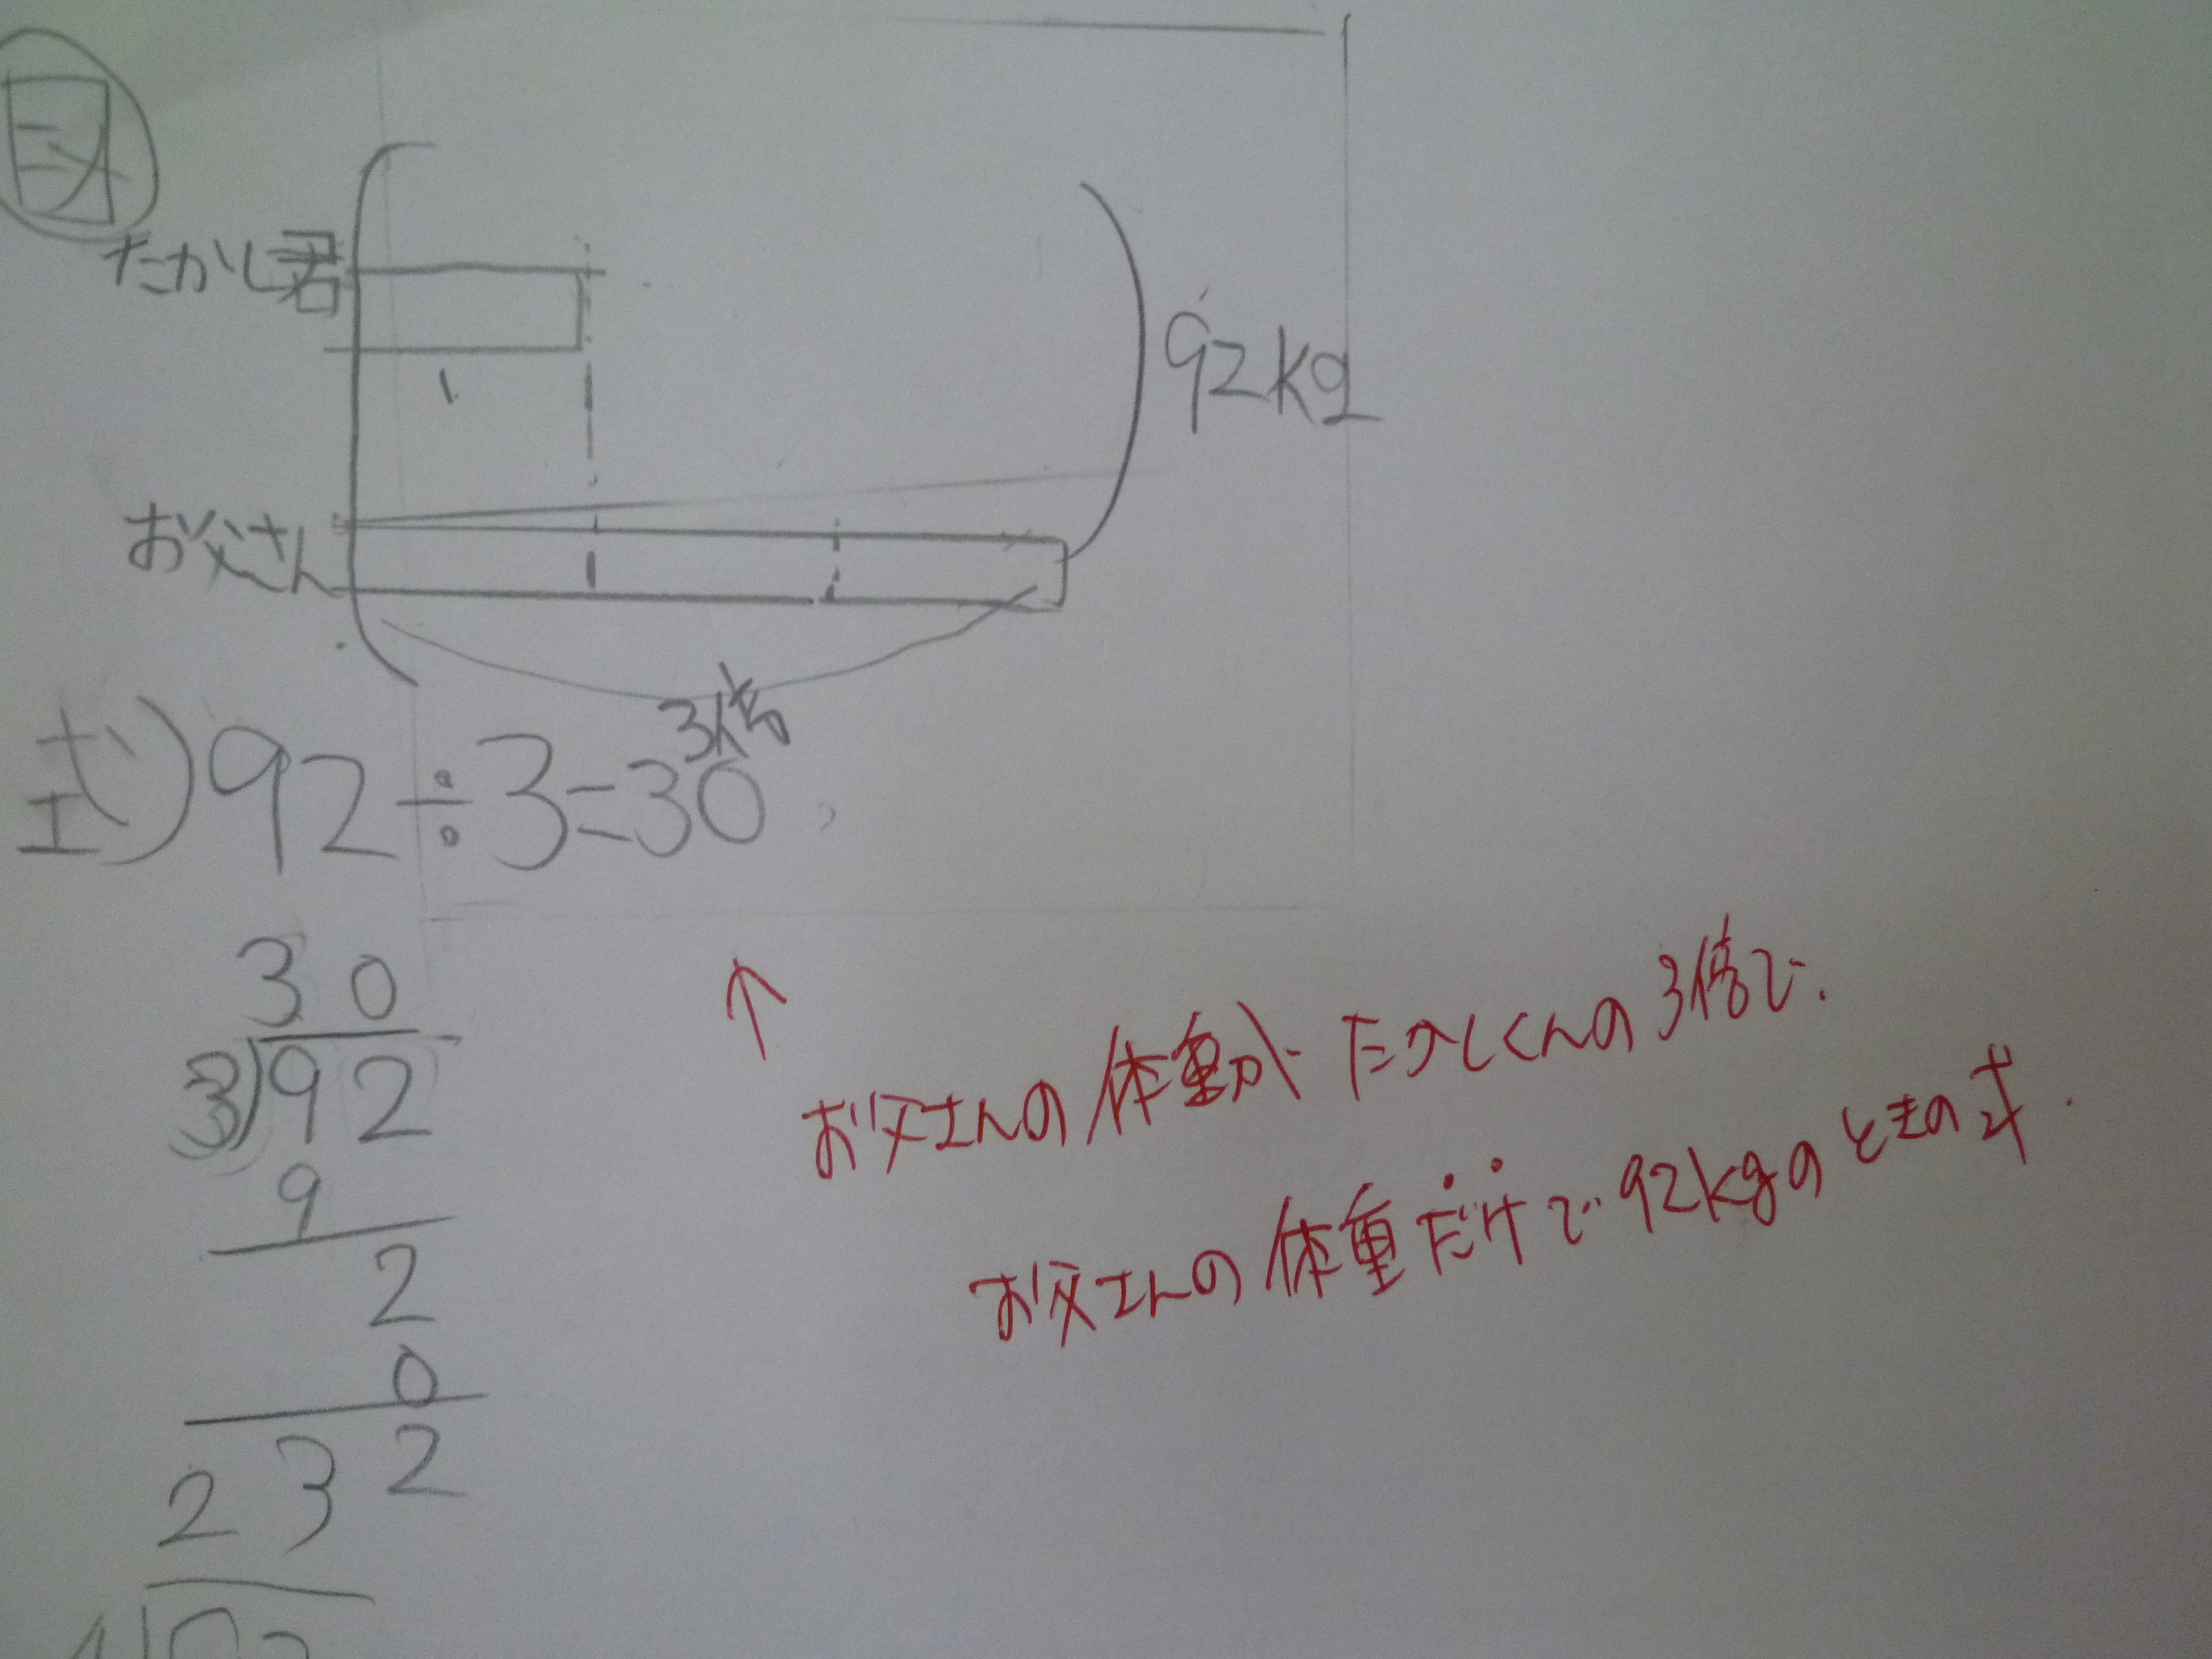 図
たかし君
1
92kg
お父さん
3倍
式)92÷3=30
30
3)92
9
2
0
2
23
↑
お父さんの体重が たかしくんの3倍で、
お父さんの体重だけで92kgのときの式.